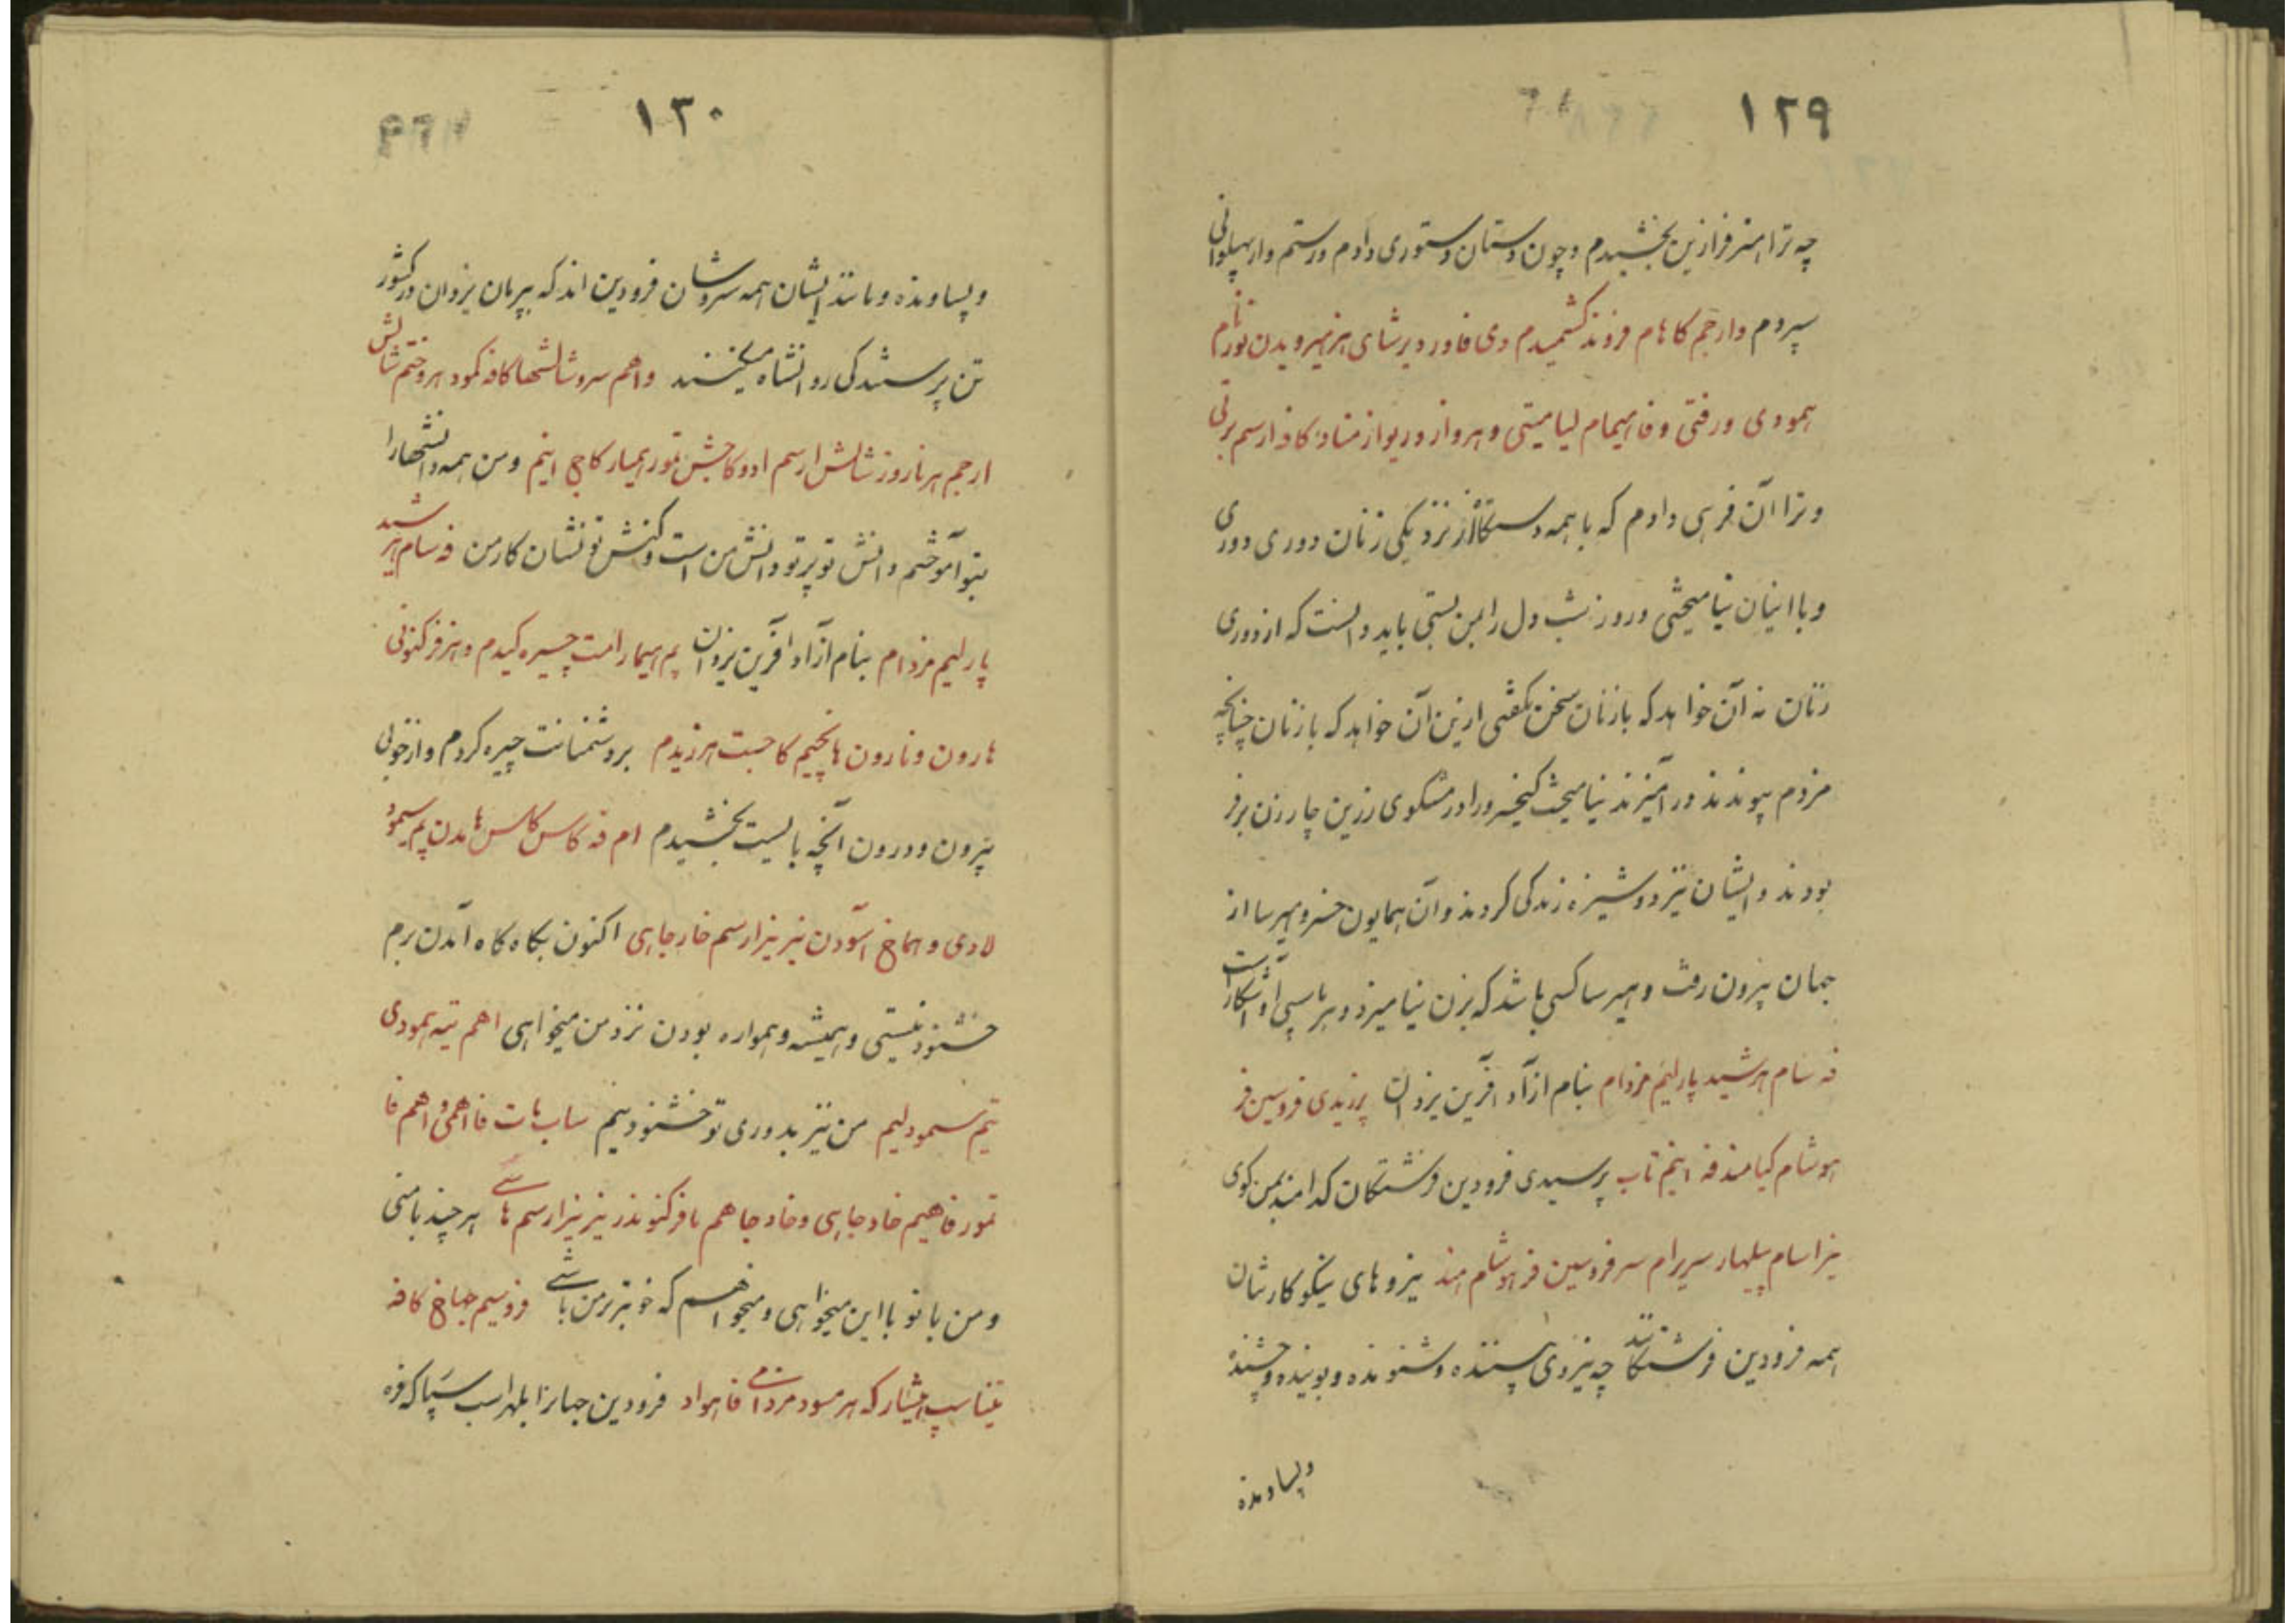 ١٢٩
چه ترا هنر فرازین بخشیدم و چون دستان دستوری دادم و رستم وار پهلوانی
سپردم وارجم کا هام فروند کشمیدم دی فاور دیر شای هزمهر ویدن تورنام
همودی ورفتی و فا میهام لیامیتی و هرواز وریواز مناد کاد ارسم برنی
و ترا آن فرهی دادم که با همه دستگاه از نزدیکی زنان دوری دوری
و با اینان نیامیختی و روز شب دل را بمن بستی باید دانست که از دوری
زنان نه آن خواهد که با زنان سخن نگفتی ازین آن خواهد که با زنان چنانچه
مردم پیوندند و در آمیزند نیامیخت کیخسرو را در مشکوی زرین چار زن برفر
بودند و ایشان نیز دوشیزه زندگی کردند و آن همایون خسرو هیرسا از
جهان بیرون رفت و هیرسا کسی باشد که بزن نیامیزد و هرباسپی او آشکار است
فه شام هرشید پارلیم مزدام بنام ازآد آفرین یزدان پرزیدی فروسین فر
هوشام کیامند فه اینم تاب پرسیدی فرودین فرشتگان کدامند بمن گوی
نیراسام پیلهار سریرام سر فروسین فر هوشام اند نیروهای نیکوکارشان
همه فرودین فرشتگانند چه نیروی بیننده و شنونده و بوینده و چشنده
و پساونده
١٣٠
و پساونده و مانند ایشان همه سروشان فرودین اند که بپرمان یزدان در کشور
تن پرستندگی روانشاه میکنند واهم سروشالشها کافه کمود هروختم شالش
ارجم هرناروز شالش ارسم ادو کاجش تور همیار کاجی اینم و من همه دانشها را
بتو آموختم دانش تو پرتو دانش من است و کنش تو نشان کار من فه سام هر شید
پارلیم مزدام بنام ازآد آفرین یزدان پم هیمار امت چسیره کیدم و هنر فرکنونی
هارون و نارون هانچیم کاجست هرزیدم بر دشمنانت چیره کردم و از خوبی
بیرون و درون آنچه بایست بخشیدم ام فه کاس کاس هامدن پم سیمود
لادی و هماخ آسودن نیز نیزارسم خار جاهی اکنون بگاه گاه آمدن برم
خشنود نیستی و همیشه و همواره بودن نزد من میخواهی اهم تیه همودی
تیم سمود لیم من نیز بدوری تو خشنود نیم ساب هات فا اهمی و اهم فا
تور فاهیم خاد جاهی و خاد جاهم نافرکنوند ز نیز نیزارسم هاشی هر چند با منی
و من با تو با این میخواهی و میخواهم که خوبتر نزد من باشی فروسیم جهاخ کافه
تیناسپ میشار که هرمسود مزدامی فاهواد فرودین جهانرا بلهراسب سپار که فره